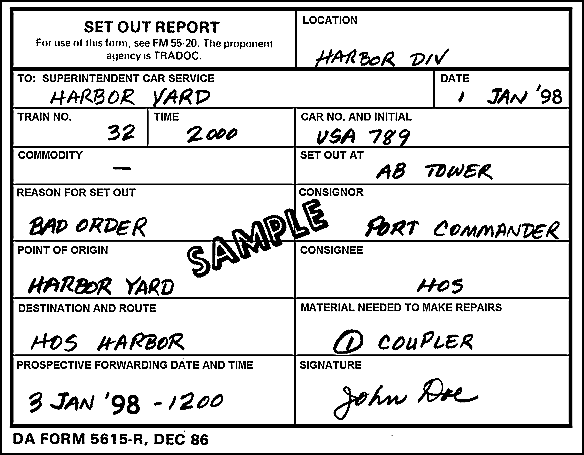 SET OUT REPORT
For use of this form, see FM 55-20. The proponent
agency is TRADOC.
LOCATION
HARBOR DIV
TO: SUPERINTENDENT CAR SERVICE
HARBOR YARD
DATE
1 JAN '98
TRAIN NO.
32
TIME
2000
CAR NO. AND INITIAL
USA 789
COMMODITY
—
SET OUT AT
AB TOWER
REASON FOR SET OUT
BAD ORDER
CONSIGNOR
PORT COMMANDER
SAMPLE
POINT OF ORIGIN
HARBOR YARD
CONSIGNEE
HOS
DESTINATION AND ROUTE
HOS HARBOR
MATERIAL NEEDED TO MAKE REPAIRS
① COUPLER
PROSPECTIVE FORWARDING DATE AND TIME
3 JAN '98 - 1200
SIGNATURE
John Doe
DA FORM 5615-R, DEC 86